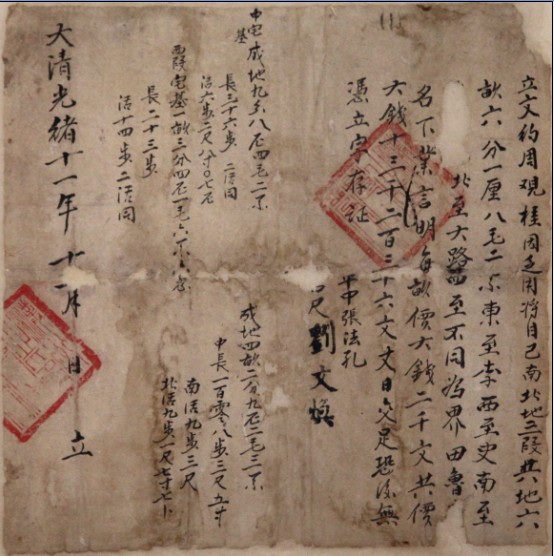 立文约周观桂因乏用将自己南北地二段共地六
畝六分一厘八毛二糸東至李西至史南至
北至大路四至不同為界田魯
名下業言明每畝價大錢二千文共價
大錢十三千二百三十六文文日交足恐後無
憑立字存证
平中張法孔
劉文煥
成地四畝二分九厘二毛三糸
中長一百零八步三尺五寸
南活九步三尺
北活九步二尺七寸七卜
中宅基成地九分八厘四毛二糸
長三十六步二活同
活六步二尺八寸〇七厘
西段宅基一畝三分四厘一毛六糸
長二十三步
活十四步二活同
大清光緒十一年十一月日立